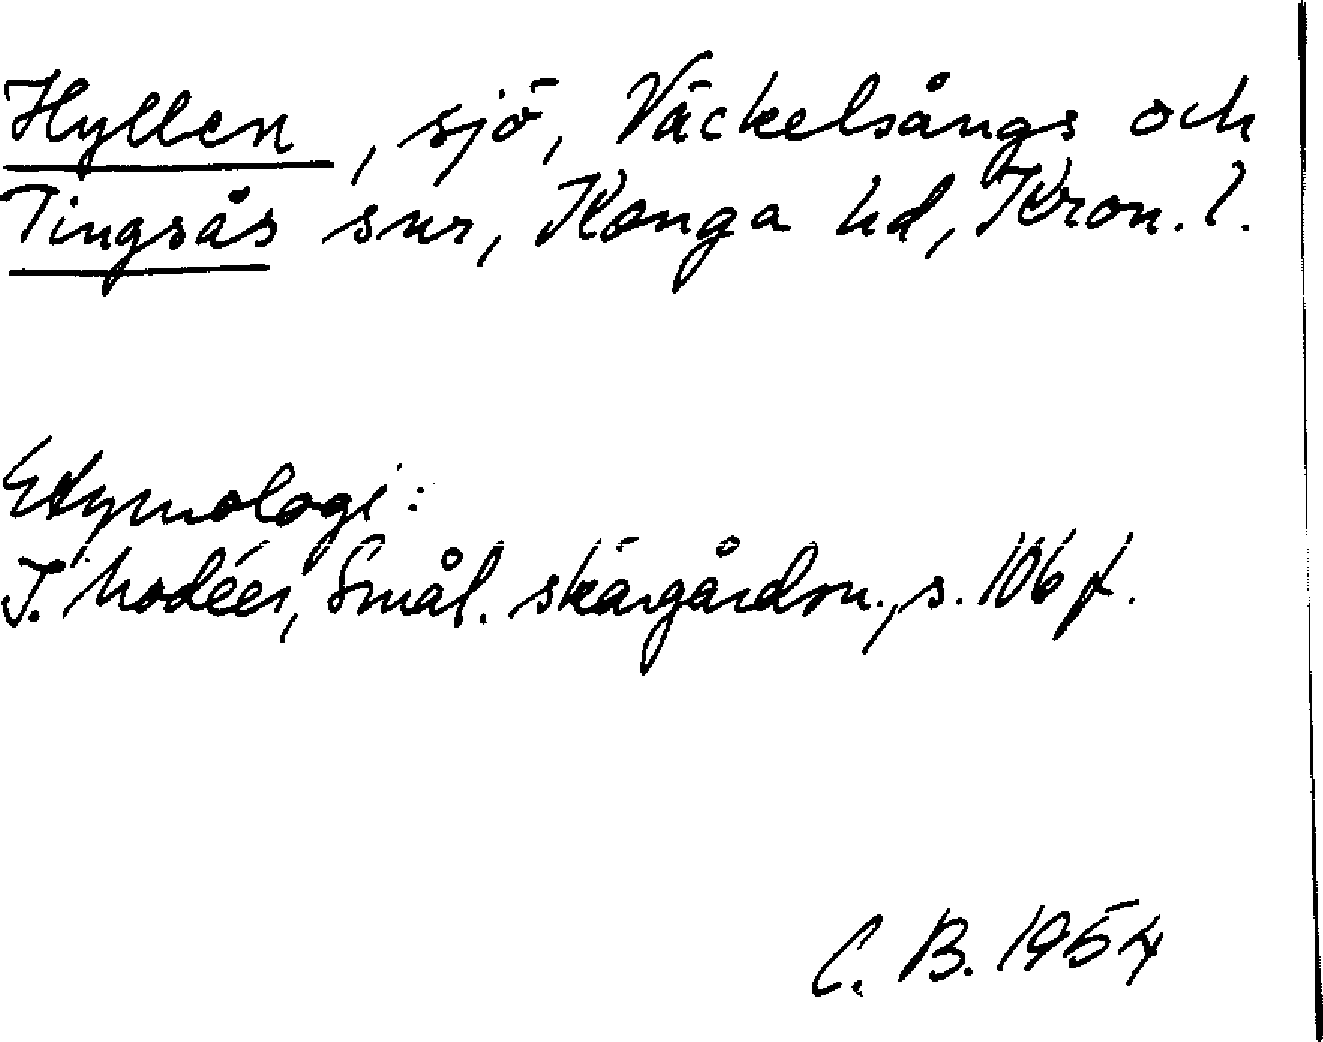 Hyllen, sjö, Väckelsångs och
Tingsås snr, Konga hd, Kron. l.
Etymologi:
I. Modéer, Smål. skärgårdsn., s. 106 f.
C. B. 1954